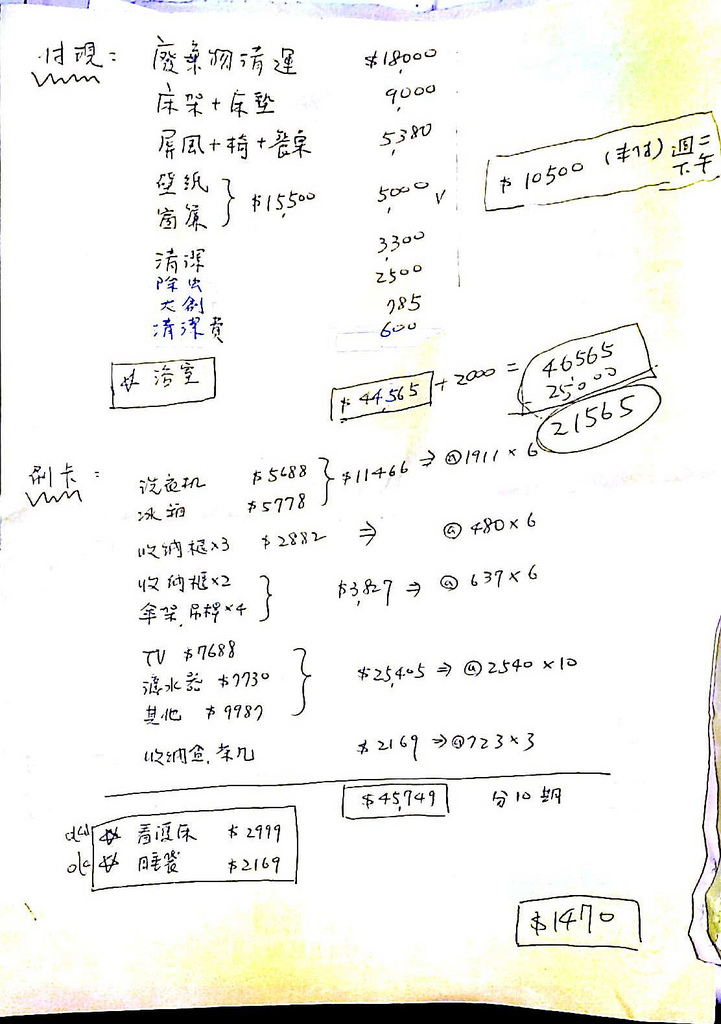 付現： 廢棄物清運 $18,000
床架+床墊 9,000
屏風+椅+餐桌 5,380
$10500 (未付) 週二下午
壁紙
窗簾 } $15,500 5,000 V
清潔 3,300
除虫 2500
大創 785
清潔費 600
☆ 浴室
$44,565 + 2000 = 46565
- 25000
21565
刷卡：
洗衣机 $5688
冰箱 $5778 } $11466 ⇒ @1911×6
收納框×3 $2882 ⇒ @480×6
收納框×2
傘架,吊桿×4 } $3,827 ⇒ @637×6
TV $7688
濾水器 $7730
其他 $9987 } $25,405 ⇒ @2540×10
收納盒,茶几 $2169 ⇒ @723×3
$45,749 分10期
☆ 看護床 $2999
ok ☆ 睡袋 $2169
$1470